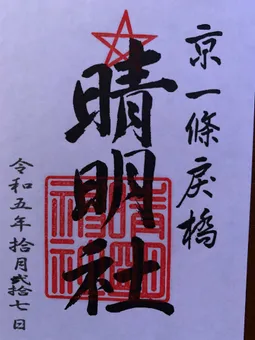 京一條戻橋
晴明社
令和五年拾月弐拾七日